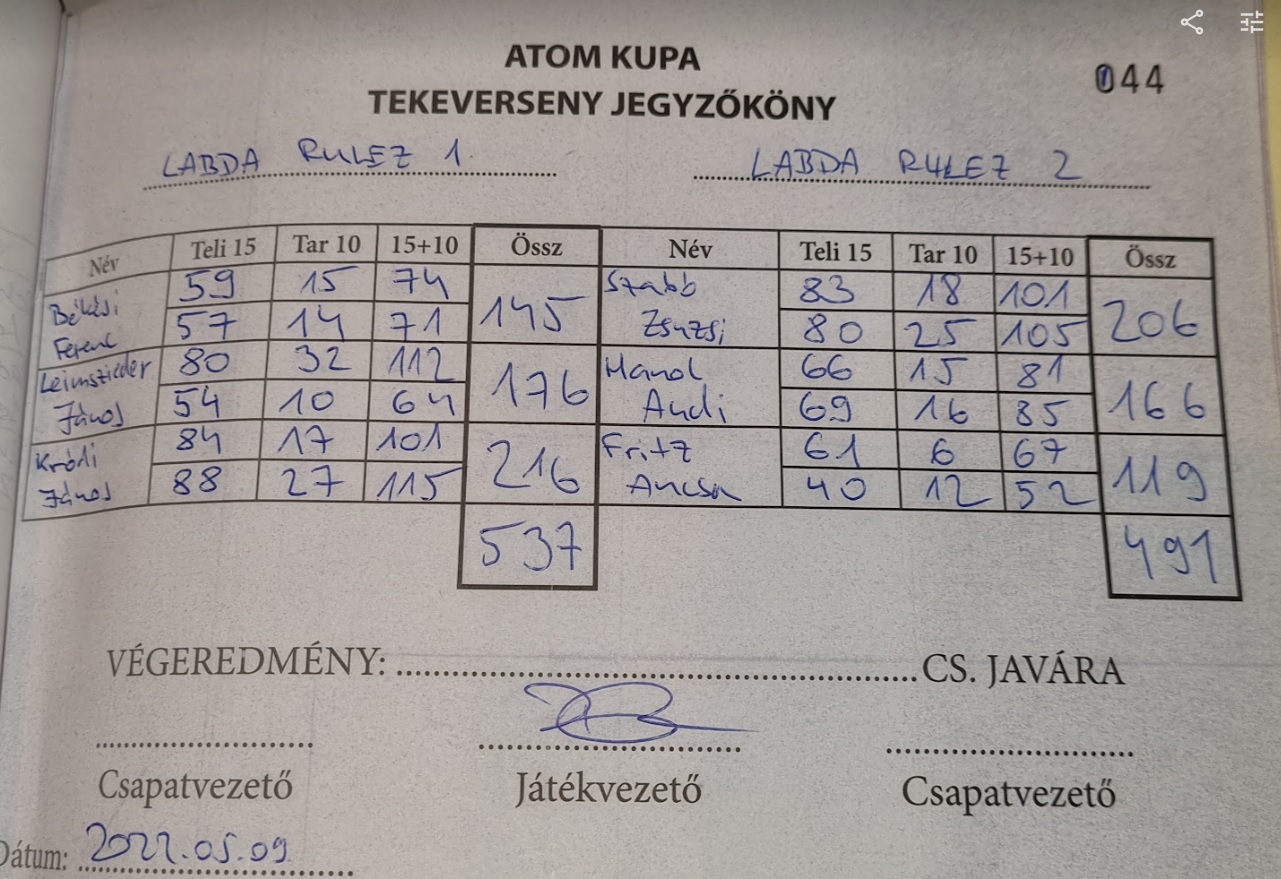 ATOM KUPA
044
TEKEVERSENY JEGYZŐKÖNY
LABDA RULEZ 1.
LABDA RULEZ 2
Név Teli 15 Tar 10 15+10 Össz Név Teli 15 Tar 10 15+10 Össz
Békési 59 15 74 145 Szabb 83 18 101 206
Ferenc 57 14 71 Zsuzsi 80 25 105
Leimszieder 80 32 112 176 66 15 81 166
János 54 10 64 Andi 69 16 85
Król­i 84 17 101 216 Fritz 61 6 67 119
János 88 27 115 Ancsa 40 12 52
537 491
VÉGEREDMÉNY: CS. JAVÁRA
Csapatvezető Játékvezető Csapatvezető
Dátum: 2022.05.09